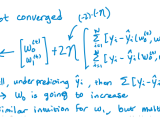 not converged
(-2)·(-η)
← [w₀⁽ᵗ⁾ w₁⁽ᵗ⁾] + 2η [∑ᵢ₌₁ᴺ [yᵢ - ŷᵢ(w₀⁽ᵗ⁾, w
∑ᵢ₌₁ᴺ [yᵢ - ŷᵢ(w₀⁽ᵗ⁾, w
ll, underpredicting ŷᵢ, then ∑[yᵢ - ŷ
→ w₀ is going to increase
similar intuition for w₁, but mult